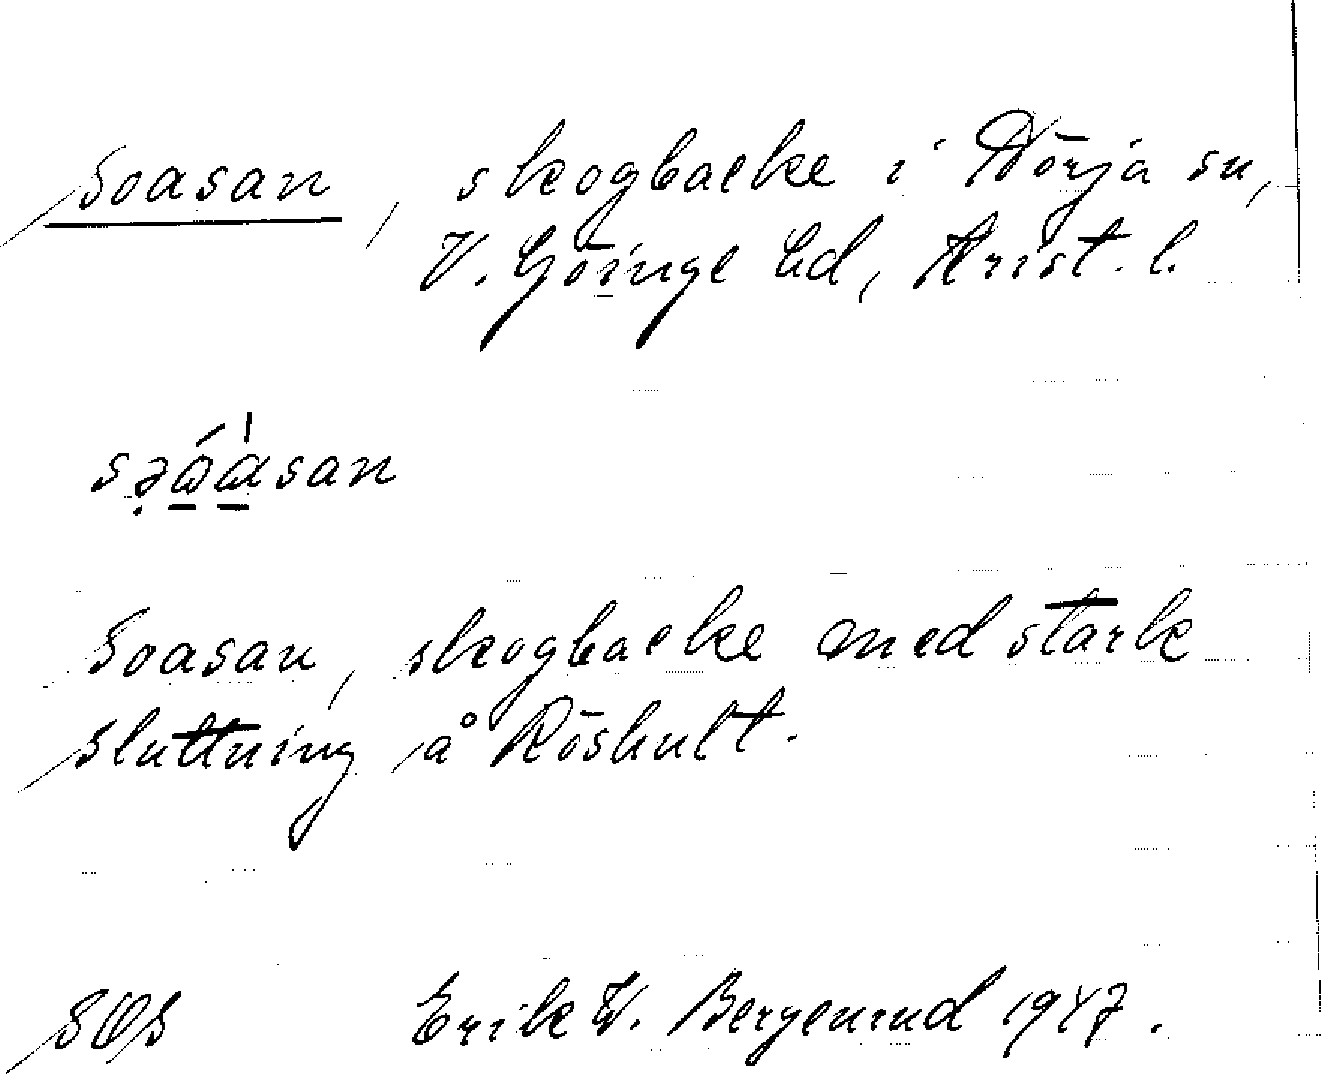 Soasan, skogbacke i Nörja sn,
V. Göinge hd, Krist. l.
Soasan, skogbacke med stark
sluttning å Röshult.
Erik W. Bergenrud 1947.